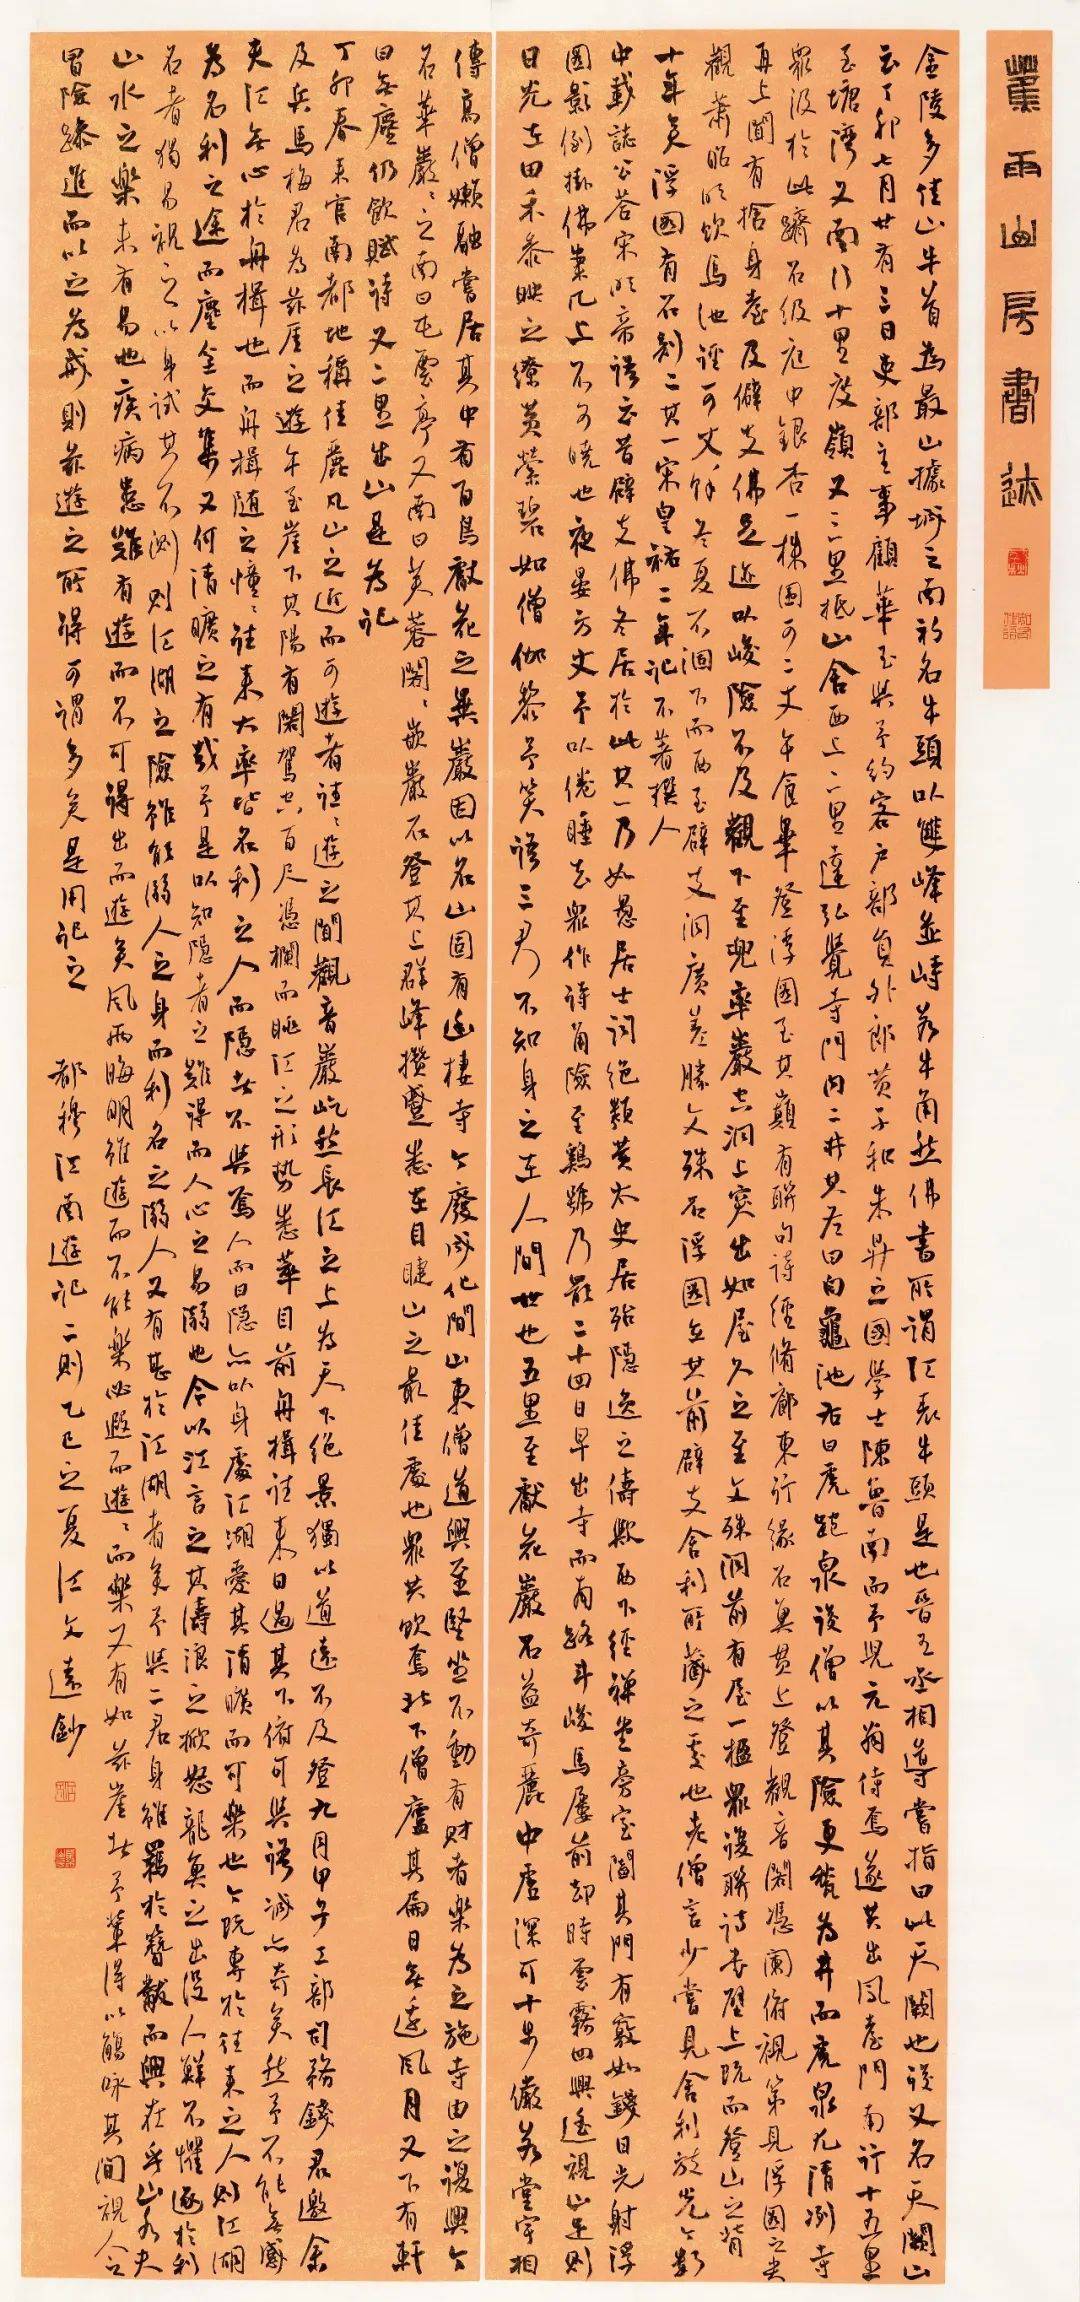 雨山房書迹
金陵多佳山牛首為最山據城之南初名牛頭以雙峰並峙若牛角然佛書所謂江表牛頭是也晉王丞相導嘗指曰此天闕也後又名天闕山
丁卯七月廿有三日吏部主事顧華玉與予約客戶部員外郎黃子和朱升之國學士陳魯南而予兄元翁侍焉遂共出鳳臺門南行十五里
至塘灣又南行十里度嶺又三里抵山舍西上一里達弘覺寺門內二井其左曰白龜池右曰虎跑泉後僧以其險更甃為井而虎泉尤清冽寺
眾汲於此躋石級庭中銀杏一株圍可二丈午食畢登浮圖至其巔有聯句詩經脩廊東行緣石魚貫上登觀音閣憑闌俯視第見浮圖之尖
再上閣有捨身臺及辟支佛足迹以峻險不及觀下至兜率巖穴洞上突出如屋久之至文殊洞前有屋一楹眾復聯詩書壁上既而登山之背
觀蕭昭明飲馬池逕可丈許冬夏不涸下而西至辟支洞廣差勝文殊石浮圖立其前辟支舍利所藏之處也老僧言少嘗見舍利放光今數
十年矣浮圖有石刻二其一宋皇祐二年記不著撰人
中載誌公答宋明帝語云昔辟支佛冬居於此其一乃如愚居士詞絕類黃太史居殆隱逸之儔歟西下經禪堂旁室闔其門有竅如錢日光射浮
圖影倒掛佛案几上不可曉也夜宴方丈予以倦睡去眾作詩角險至雞號乃寢二十四日早出寺而南路斗峻馬屢前却時雲霧四興遙視山足則
日光在田禾黍映之繚黃縈碧如僧伽黎予笑語三君不知身之在人間世也五里至獻花巖石益奇麗中虛深可十步儼若堂宇相
傳高僧嬾融嘗居其中有百鳥獻花之異巖因以名山固有幽棲寺今廢成化間山東僧道興至堅坐不動有財者樂為之施寺由之復興今
名華巖々之南曰屯雲亭又南曰芙蓉閣々嵌巖石登其上群峰攢蹙悉在目睫山之最佳處也眾共飲焉北下僧廬其扁曰無邊風月又下有軒
曰無塵仍飲賦詩又二里出山是為記
丁卯春來官南都地稱佳麗凡山之近而可遊者往々遊之聞觀音巖屹然長江之上為天下絕景獨以道遠不及登九月甲子工部司務錢君邀余
及兵馬梅君為茲崖之遊午至崖下其陽有閣駕空百尺憑欄而眺江之形勢悉萃目前舟楫往來日過其下俯可與語誠亦奇矣然予不能無感
夫江無心於舟楫也而舟楫隨之憧々往來大率皆名利之人而隱者不與焉人而曰隱亦以身處江湖愛其清曠而可樂也今既專於往來之人則江湖
為名利之途而塵全交集又何清曠之有哉予是以知隱者之難得而人心之易溺也今以江言之其濤浪之掀怒龍魚之出沒人鮮不懼逐於利
名者獨易視之以身試其不測則江湖之險雖能溺人之身而利名之溺人又有甚於江湖者矣予與二君身雖羈於簪黻而興在乎山水夫
山水之樂未有易也疾病患難有遊而不可得出而遊矣風雨晦明雖遊而不能樂必遐而遊々而樂又有如茲崖者予輩得以觴咏其間視人之
冒險躁進而以之為戒則茲遊之所得可謂多矣是用記之 都穆江南遊記二則乙巳之夏江文遠鈔